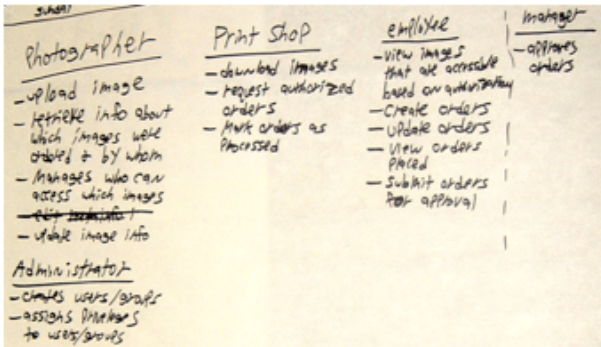 Photographer
- upload image
- retrieve info about
which images were
ordered & by whom
- Manages who can
access which images
- edit
- update image info
Administrator
- creates users/groups
- assigns privileges
to users/groups
Print Shop
- download images
- request authorized
orders
- Mark orders as
Processed
employee
- view images
that are accessible
based on authorization
- Create orders
- update orders
- View orders
placed
- Submit orders
for approval
manager
- approves
orders